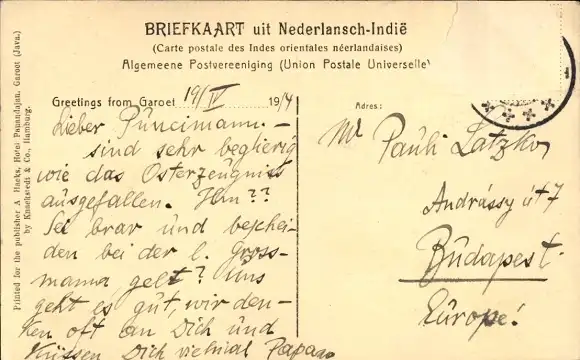 BRIEFKAART uit Nederlansch-Indië
(Carte postale des Indes orientales néerlandaises)
Algemeene Postvereeniging (Union Postale Universelle)
Printed for the publisher A Hacks, Hotel Papandajan, Garoet (Java.)
by Knackstedt & Co., Hamburg.
Greetings from Garoet 19/IV 1914
Lieber Puncimann. –
sind sehr begierig
wie das Osterzeugniss
ausgefallen. Hm??
Sei brav und beschei-
den bei der l. Gross-
mama, gelt? Uns
geht es gut, wir den-
ken oft an Dich und
Küssen Dich vielmal Papa
Adres:
Mr Pauli Latzko
Andrássy út 7
Budapest.
Europe!